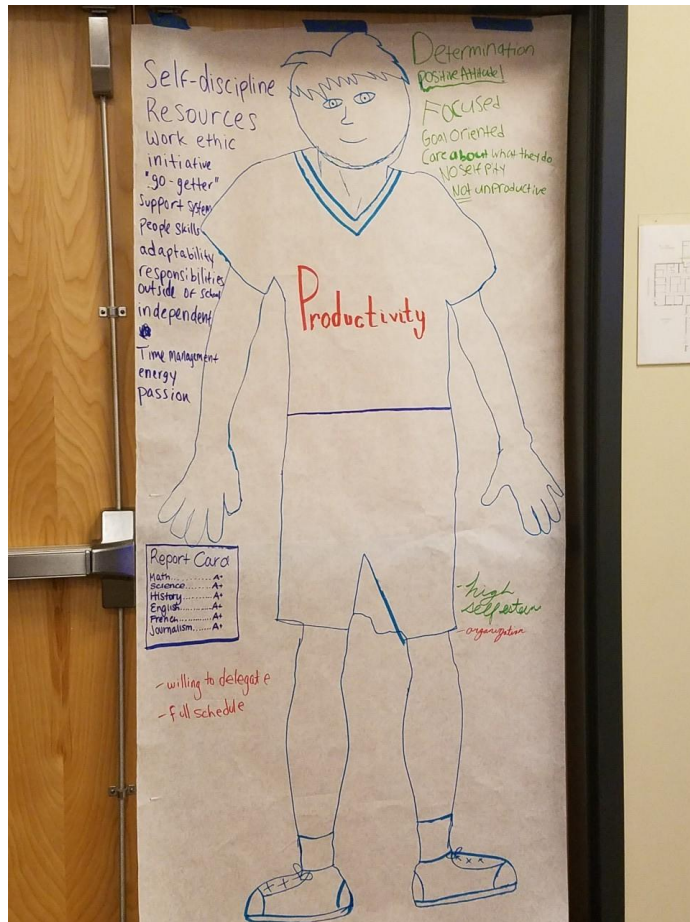 Self-discipline
Resources
Work ethic
initiative
"go-getter"
Support System
People Skills
adaptability
responsibilities
outside of school
independent
Time Management
energy
passion
Determination
Positive Attitude!
Focused
Goal Oriented
Care about what they do
No self pity
Not unproductive
Productivity
Report Card
Math......... A+
Science....... A+
History....... A+
English....... A+
French.......... A+
Journalism..... A+
-high
self esteem
-organization
-willing to delegate
-full schedule